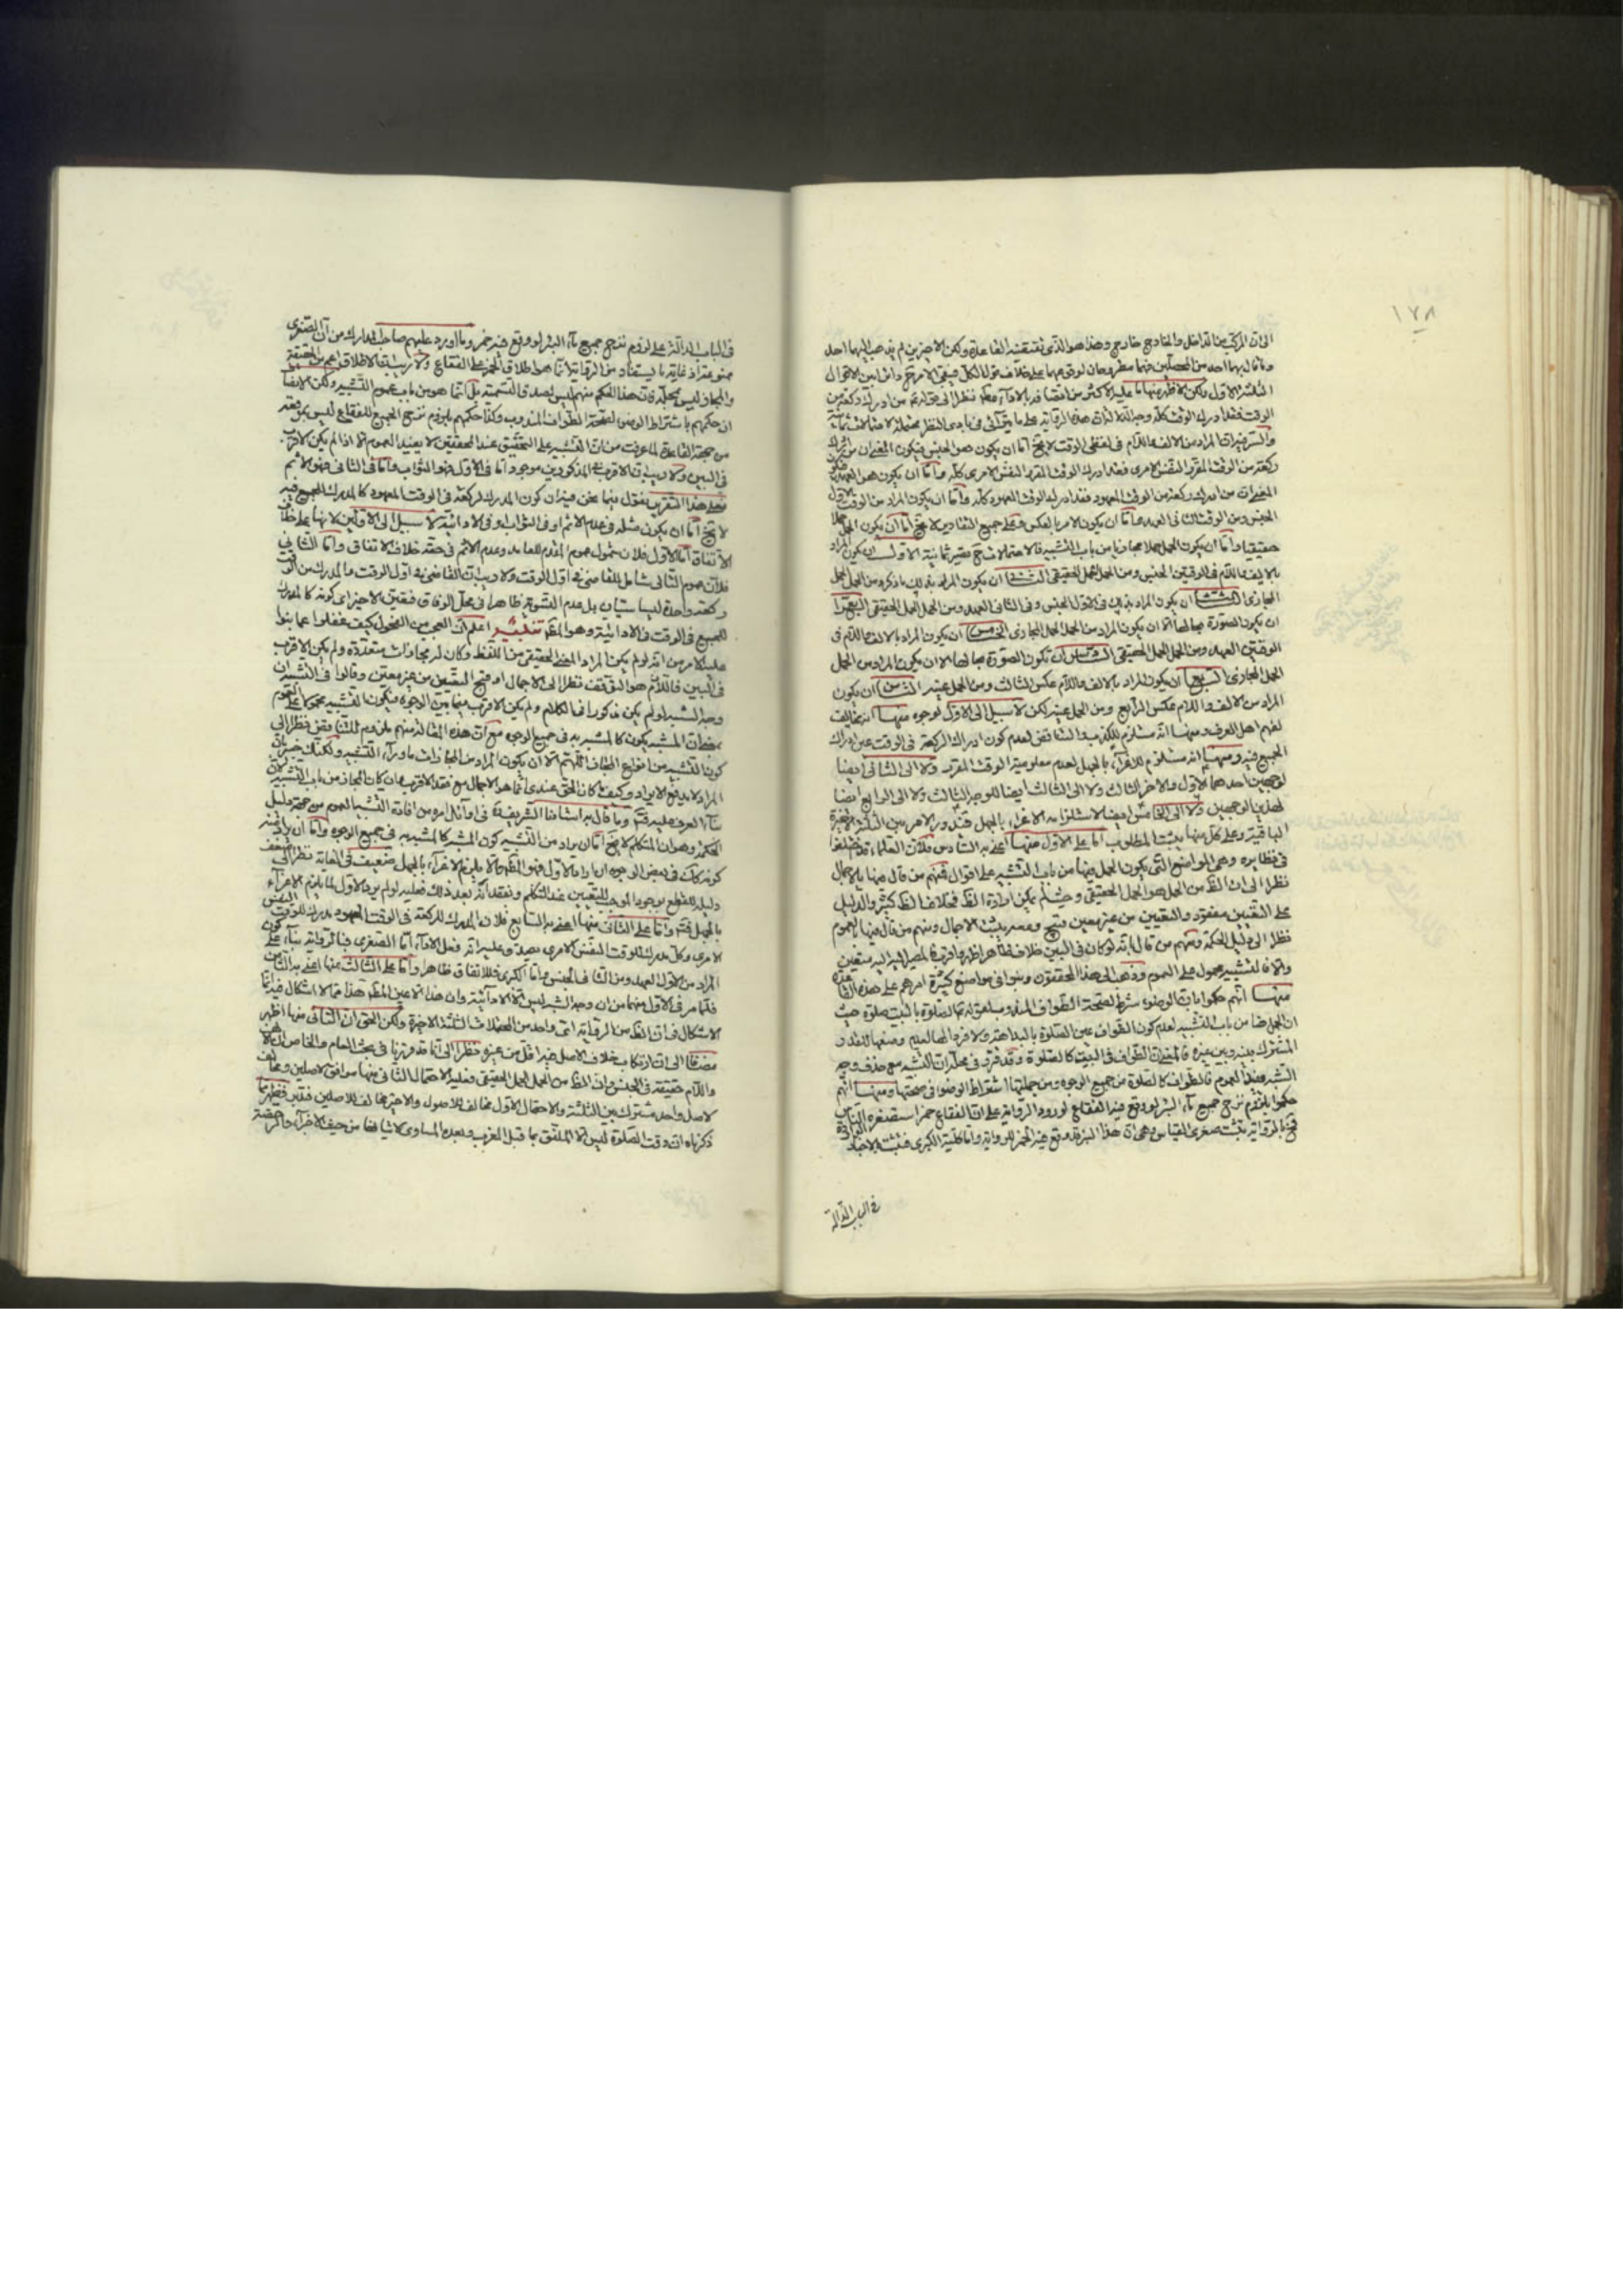 ١٧٨
الى ان المركب من الداخل والخارج خارج وهذا هو الذى تقتضيه القاعدة ولكن الاخيرين لم يذهب اليهما احد
الثلثة الاول ولكن الاظهر منها ما عليه الاكثر من انتضافه بالاداء نظرا الى قوله من ادرك ركعة من
الوقت فقد ادرك الوقت كله
والسر فيه ان المراد من الالف واللام فى لفظى الوقت لا يخ اما ان يكون هو الجنس فيكون المعنى ان من ادرك
ركعة من الوقت المقرر النفس الامرى فقد ادرك الوقت المقرر النفس الامرى كله واما ان يكون هو العهد فيكون
المعنى ان من ادرك ركعة من الوقت المعهود فقد ادرك الوقت المعهود كله واما ان يكون المراد من الوقت الاول
الجنس ومن الوقت الثانى العهد واما ان يكون الامر بالعكس فعلى جميع التقادير لا يخ اما ان يكون الحمل حملا
حقيقيا واما ان يكون الحمل حملا مجازيا من باب التشبيه فالاحتمالات ح تصير ثمانية الاول ان يكون المراد
بالالف واللام فى الوقتين الجنس ومن الحمل الحمل الحقيقى الثانى ان يكون المراد بذلك ما ذكر ومن الحمل الحمل
المجازى الثالث ان يكون المراد بذلك فى الاول الجنس وفى الثانى العهد ومن الحمل الحمل الحقيقى الرابع
ان يكون الصورة بحالها الا ان يكون المراد من الحمل الحمل المجازى الخامس ان يكون المراد بالالف واللام فى
الوقتين العهد ومن الحمل الحمل الحقيقى السادس ان تكون الصورة بحالها الا ان يكون المراد من الحمل
الحمل المجازى السابع ان يكون المراد بالالف واللام عكس الثالث ومن الحمل عينه الثامن ان يكون
المراد من الالف واللام عكس الرابع ومن الحمل عينه لكن لا سبيل الى الاول لوجوه منها انه مخالف
لفهم اهل العرف ومنها انه مستلزم للكذب والتناقض لعدم كون ادراك الركعة فى الوقت عين ادراك
الجميع فيه ومنها انه مستلزم للاغراء بالجهل لعدم معلومية الوقت المقرر ولا الى الثانى ايضا
لوجهين احدهما الاول والاخر الثالث ولا الى الثالث ايضا للوجه الثالث ولا الى الرابع ايضا
لهذين الوجهين ولا الى الخامس ايضا لاستلزامه الاغراء بالجهل فيدور الامر بين الثلثة الاخيرة
الباقية وعلى كل منها يثبت المطلوب اما على الاول منها اعنى به السادس فلان العلماء قد اختلفوا
فى نظايره وهى المواضع التى يكون الحمل فيها من باب التشبيه على اقوال فمنهم من قال فيها بالاجمال
نظرا الى ان الظ من الحمل هو الحمل الحقيقى وحيث لم يمكن ارادة الظ فخلاف الظ كثير والدليل
على التعيين مفقود والتعيين من غير معين قبيح ومعه يثبت الاجمال ومنهم من قال فيها بالعموم
نظرا الى دليل الحكمة ومنهم من قال بانه لو كان فى البين خلاف ظاهر اظهر واقرب فالمصير اليه متعين
والا فالتشبيه محمول على العموم وذهب الى هذا المحققون وبنوا فى مواضع كثيرة امرهم على هذه القاعدة
منها انهم حكموا بان الوضوء شرط لصحة الطواف المندوب لقوله الطواف بالبيت صلوة حيث
ان الحمل هنا من باب التشبيه لعدم كون الطواف عين الصلوة بالبداهة
المشترك بينه وبين غيره فالمعنى ان الطواف فى البيت كالصلوة وقد قرر فى محله ان التشبيه مع حذف وجه
الشبه مفيد للعموم فالطواف كالصلوة من جميع الوجوه ومن جملتها اشتراط الوضوء فى صحتها ومنها انهم
حكموا بلزوم نزح جميع ماء البئر لو وقع فيه الفقاع لورود الرواية على ان الفقاع خمر استصغره الناس
فح بالرواية يثبت صغرى القياس وهى ان هذا البئر قد وقع فيه الخمر للرواية واما كلية الكبرى فتثبت بالاخبار الواردة
فى الباب الدالة
فى الباب الدالة على لزوم نزح جميع ماء البئر لو وقع فيه خمر وما اورد عليهم صاحب المدارك من ان الصغرى
ممنوعة اذ غاية ما يستفاد من الرواية انما هو اطلاق الخمر على الفقاع ولا ريب ان الاطلاق اعم من الحقيقة
والمجاز ليس بمحله فان هذا الحكم منهم ليس لصدق التسمية بل انما هو من باب عموم التشبيه ولكن الانصاف
ان حكمهم باشتراط الوضوء لصحة الطواف المندوب وكذا حكمهم بلزوم نزح الجميع للفقاع ليس بموقعه
من جهة القاعدة لما عرفت من ان التشبيه على التحقيق عند المحققين لا يفيد العموم الا اذا لم يكن الاقرب
فى البين ولا ريب ان الاقرب فى المذكورين موجود اما فى الاول فهو الثواب واما فى الثانى فهو الاثم
فعلى هذا التقرير نقول فيما نحن فيه ان كون المدرك لركعة فى الوقت المعهود كالمدرك للجميع فيه
لا يخ اما ان يكون مثله فى عدم الاثم او فى الثواب او فى الادائية لا سبيل الى الاولين لانهما على خلاف
الاتفاق اما الاول فلان شمول عموم للعامد وعدم الاثم فى حقه خلاف الاتفاق واما الثانى
فلان عموم الثانى شامل للقاضى فى اول الوقت ولا ريب ان القاضى فى اول الوقت والمدرك من الوقت
ركعة واحدة ليسا سيان بل عدم التسوية ظاهرا فى محل الوفاق فتعين الاخير اى كونه كالمدرك
للجميع فى الوقت فى الادائية وهو المط تنبيه اعلم ان العجب من الفحول كيف غفلوا عما بنوا
عليه الامر من انه لو لم يكن المراد المعنى الحقيقى من اللفظ وكان له مجازات متعددة ولم يكن الاقرب
فى البين فاللازم هو التوقف نظرا الى الاجمال او قبح التعيين من غير معين وقالوا فى التشبيه ان
وجه الشبه لو لم يكن مذكورا فى الكلام ولم يكن الاقرب فيما بين الوجوه فيكون التشبيه محمولا على العموم
بمعنى ان المشبه يكون كالمشبه به فى جميع الوجوه مع ان هذه المقالة منهم ملزوم للتناقض نظرا الى
كون التشبيه من انواع المجاز اللهم الا ان يكون المراد من المجازات ما وراء التشبيه ولكنك خبير بان
المراد لا يدفع الايراد وكيف كان الحق عندى انما هو الاجمال مع فقد الاقرب وان كان المجاز من باب التشبيه لان
بناء العرف عليه فتم وما قال به استادنا الشريف فى اوائل امره من افادة التشبيه العموم من جهة دليل
الحكمة وهو ان المتكلم لا يخ اما ان يراد من التشبيه كون المشبه كالمشبه به فى جميع الوجوه واما ان يراد منه
كونه كك فى بعض الوجوه ان اراد الاول فهو المط والا يلزم الاغراء بالجهل ضعيف فى الغاية نظرا الى ضعف
دليله للقطع بوجود الموجب للتعيين عند التكلم وفقدانه بعد ذلك فعليه لو لم يرد الاول لما يلزم الاغراء
بالجهل فتم واما على الثانى منها اعنى به السابع فلان المدرك للركعة فى الوقت المعهود مدرك للوقت النفس
الامرى وكل مدرك للوقت النفس الامرى يصدق عليه انه فعل الاداء اما الصغرى فبالرواية بناء على كون
المراد من الاول العهد ومن الثانى الجنس واما الكبرى فللاتفاق ظاهرا واما على الثالث منها اعنى به الثامن
فلما مر فى الاول منها من ان وجه الشبه ليس الا الادائية وان هذا الا عين المط هذا مما لا اشكال فيه انما
الاشكال فى ان الظ من الرواية اى واحد من المحتملات الثلثة الاخيرة ولكن الحق ان الثانى منها اظهر
مضافا الى ان ارتكاب خلاف الاصل فيه اقل من غيره نظرا الى ما قد قررنا فى بحث العام والخاص ان الالف
واللام حقيقة فى الجنس وان الظ من الحمل الحمل الحقيقى فعليه الاحتمال الثانى منها موافق لاصلين ومخالف
لاصل واحد مشترك بين الثلثة والاحتمال الاول مخالف للاصول والاخير مخالف للاصلين فتدبر فظهر مما
ذكرناه ان وقت الصلوة ليس الا الملفق بما قبل المغرب وبعده المساوى